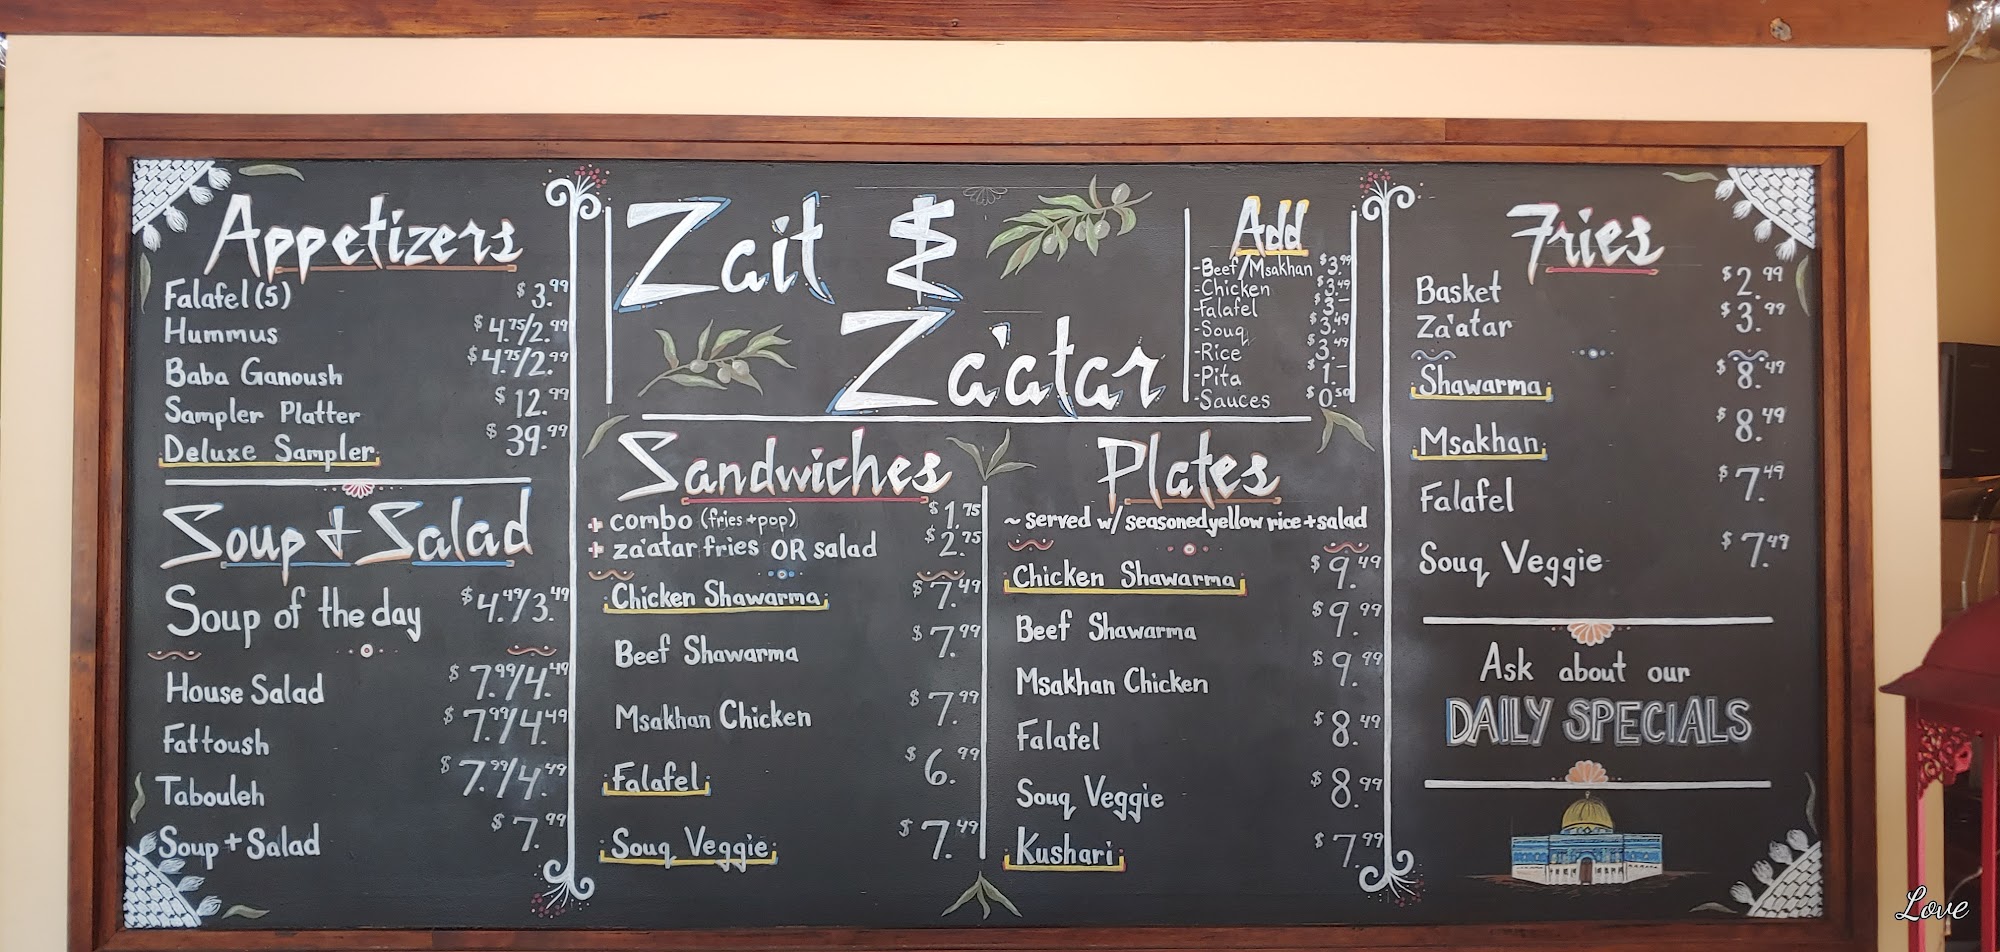 Appetizers
Falafel (5) $3.99
Hummus $4.75/2.99
Baba Ganoush $4.75/2.99
Sampler Platter $12.99
Deluxe Sampler $39.99
Soup + Salad
Soup of the day $4.49/3.49
House Salad $7.99/4.49
Fattoush $7.99/4.49
Tabouleh $7.99/4.49
Soup + Salad $7.99
Zait &
Za'atar
Add
-Beef/Msakhan $3.99
-Chicken $3.49
-Falafel $3.-
-Souq $3.49
-Rice $3.49
-Pita $1.-
-Sauces $0.50
Sandwiches
+ combo (fries+pop) $1.75
+ za'atar fries OR salad $2.75
Chicken Shawarma $7.49
Beef Shawarma $7.99
Msakhan Chicken $7.99
Falafel $6.99
Souq Veggie $7.49
Plates
~ served w/ seasoned yellow rice + salad
Chicken Shawarma $9.49
Beef Shawarma $9.99
Msakhan Chicken $9.99
Falafel $8.49
Souq Veggie $8.99
Kushari $7.99
Fries
Basket $2.99
Za'atar $3.99
Shawarma $8.49
Msakhan $8.49
Falafel $7.49
Souq Veggie $7.49
Ask about our
DAILY SPECIALS
Love